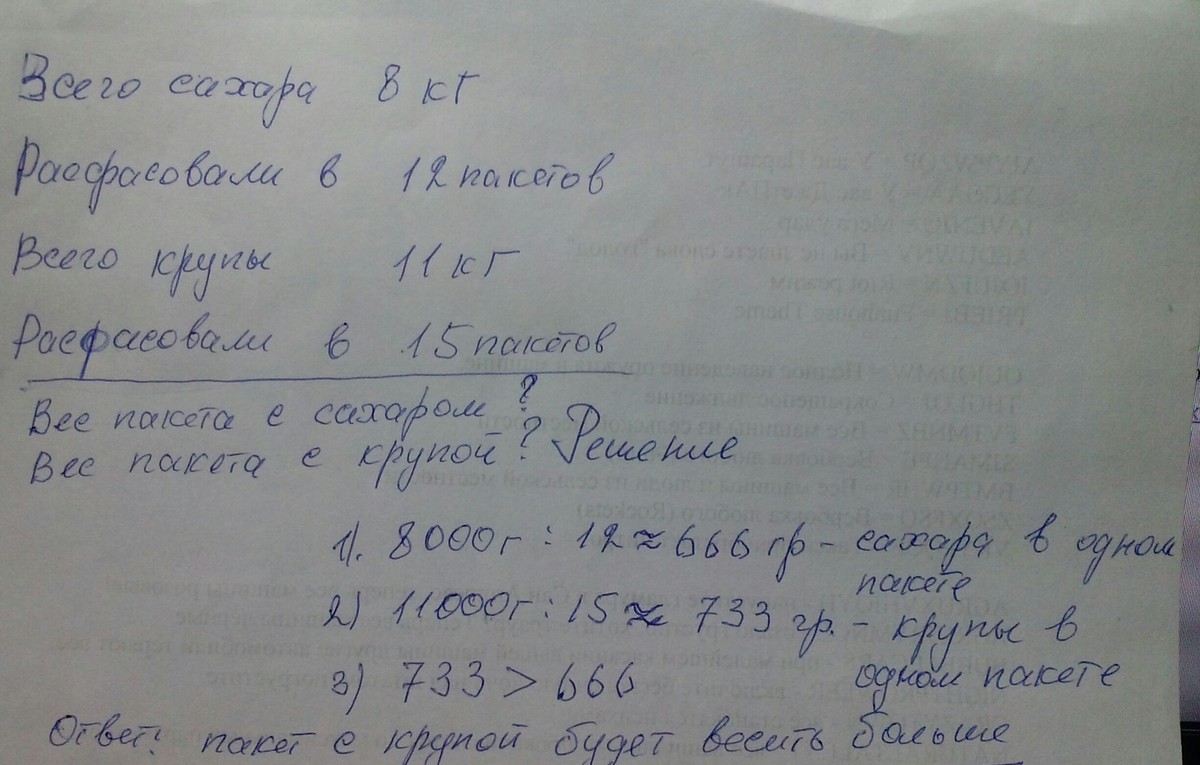 Всего сахара 8 кг
Расфасовали в 12 пакетов
Всего крупы 11 кг
Расфасовали в 15 пакетов
Вес пакета с сахаром ?
Вес пакета с крупой ? Решение
1). 8000г : 12 ≈ 666 гр - сахара в одном
пакете
2) 11000г : 15 ≈ 733 гр. - крупы в
одном пакете
3) 733 > 666
Ответ: пакет с крупой будет весить больше